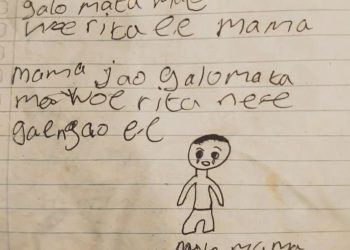 galo mata mae
woe rita ee mama
mama jao galomata
ma woe rita nere
gaengao e-e
mama